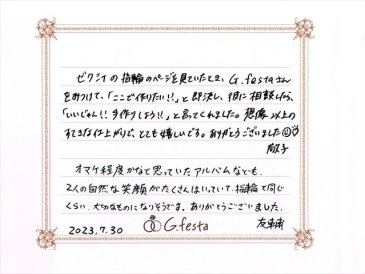 ゼクシィの指輪のページを見ていたとき、G.festaさん
をみつけて、「ここで作りたい!!」と即決し、彼に相談したら、
「いいじゃん!! 手作りしよう!!」と言ってくれました。想像以上の
すてきな仕上がりで、とても嬉しいです。ありがとうございました
オマケ程度かなと思っていたアルバムなども、
2人の自然な笑顔がたくさんはいっていて、指輪と同じ
くらい、大切なものになりそうです。ありがとうございました。
2023.7.30
G.festa